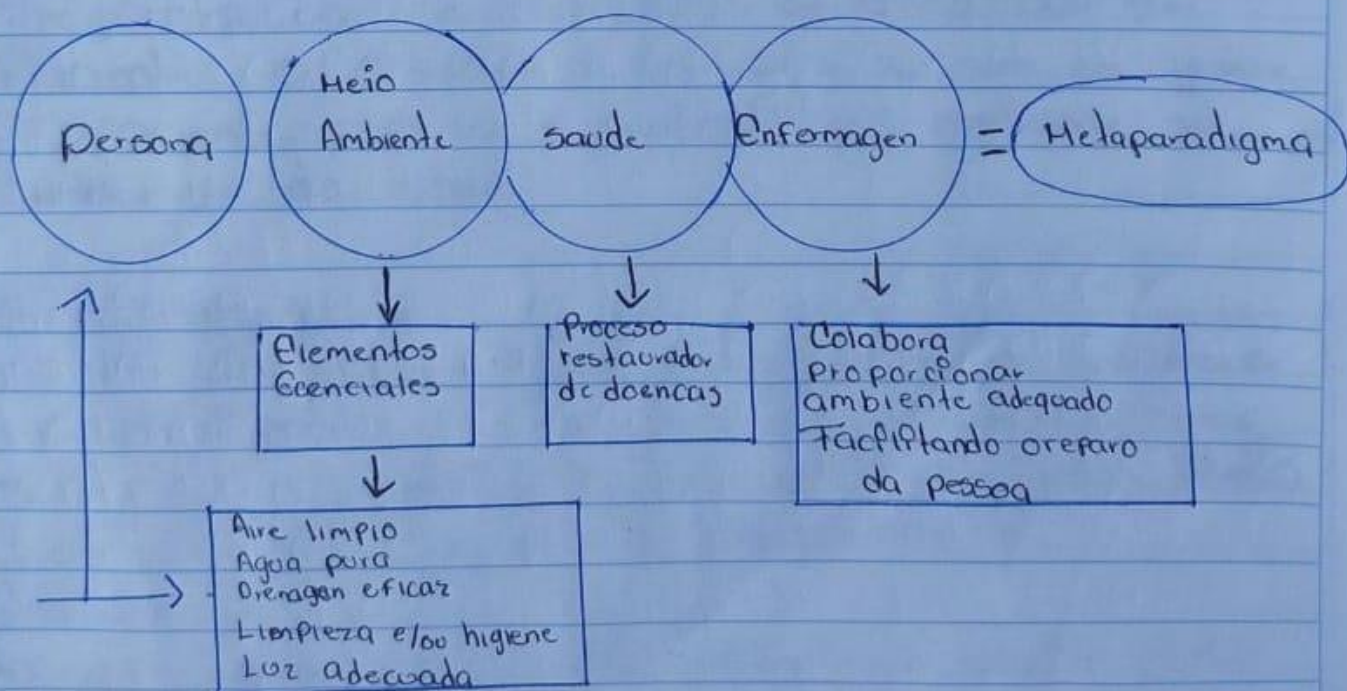 Persona
Meio
Ambiente
saude
Enfermagen
=
Metaparadigma
Elementos
Ecenciales
Proceso
restaurador
de doencas
Colabora
Proporcionar
ambiente adequado
Facilitando o reparo
da pessoa
Aire limpio
Agua pura
Drenagen eficaz
Limpieza e/ou higiene
Luz adecuada